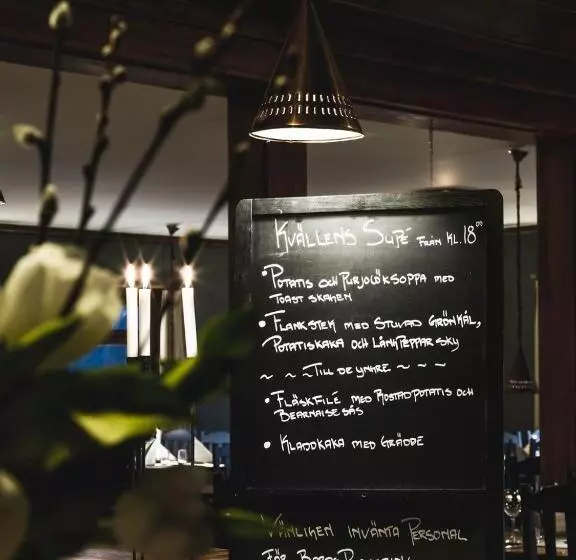 Kvällens Supé från kl. 18⁰⁰
• Potatis och Purjolöksoppa med
Toast skagen
• Flankstek med Stuvad Grönkål,
Potatiskaka och Långpeppar sky
~ ~ ~ Till de yngre ~ ~ ~
• Fläskfilé med Rostad potatis och
Bearnaise sås
• Kladdkaka med Grädde
Vänligen invänta Personal
för